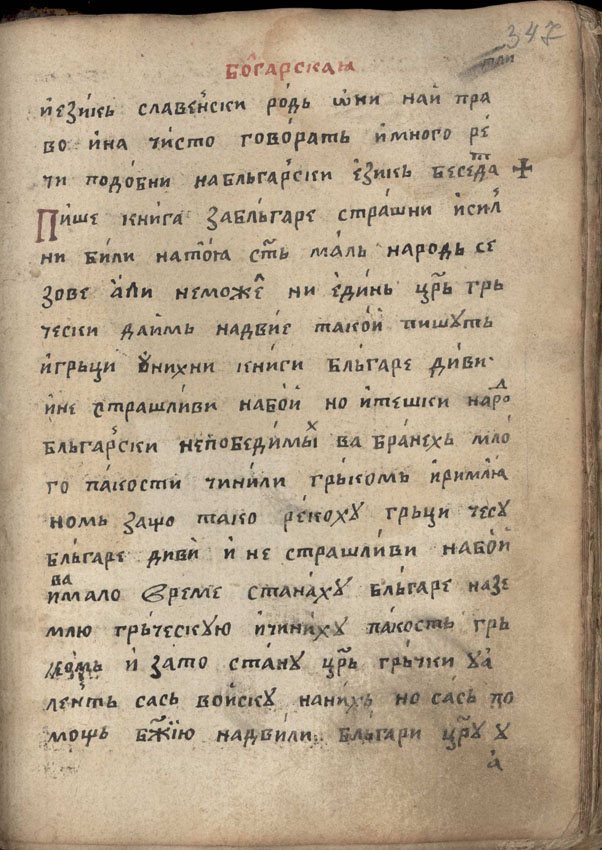 347
бо̂гарскаꙗ
тли
иезикь славенски родь ѡни най пра
во и҆на чисто говорать и҆много ре
чи подобни набльгарски е҆зикь беседа ✠
Пише книга забльгаре страшни и҆сил
ни били натою сть маль народь се
зове а҆ли неможе ни е҆динь црь грь
чески даимь надвие такой пишуть
и҆грьци ѹнихни книги бльгаре диви
и҆не страшливи набой но и҆тешки нардо
бльгарски непобедимы ва бранехь мло
го пакости чинили грькомь и҆римлꙗ
номь защо тако рекоху грьци чесу
бльгаре диви и҆ не страшливи набой
ва
и҆мало време станаху бльгаре назе
млю грьческую и҆чиниху пакость грь
комь и҆ зато стану црь грьчки уа
лентъ сась войску нанихь но сась по
мощь бж҃їю надвили бльгари цру у
а